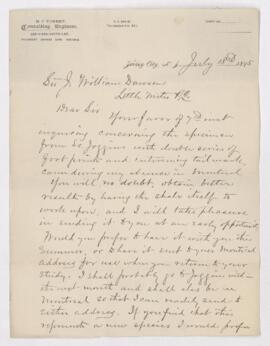 Jersey City, N.J. July 18th 1895
Sir J. William Dawson
Little Metis P.Q.
Dear Sir
Your favor of 7th inst
enquiring concerning the specimen
from So. Joggins with double series of
foot prints and intervening tail mark
came during my absence in Montreal
You will, no doubt, obtain better
results by having the shale itself to
work upon, and I will take pleasure
in sending it to you at an early opportunity.
Would you prefer to have it with you this
Summer, or have it sent to your Montreal
address for use when you return to your
study. I shall probably go to Joggins with-
in next month and shall also be in
Montreal so that I can readily send to
either address. If you find that this
represents a new species I would prefer